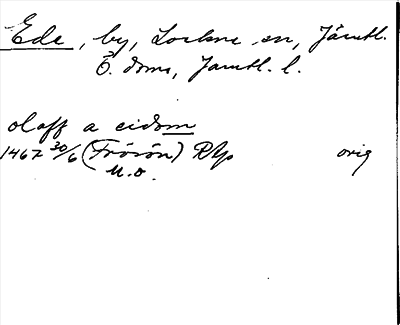 Ede, by, Lockne sn, Jämtl.
Ö. doms, Jämtl. l.
olaff a eidom
1467 30/6 (Frösön) RAp orig
U.o.